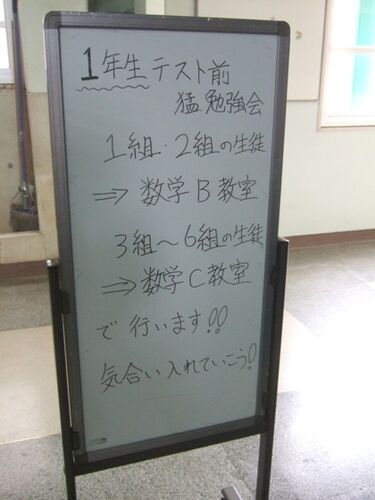 1年生 テスト前
猛勉強会
1組・2組の生徒
⇒ 数学B教室
3組〜6組の生徒
⇒ 数学C教室
で行います!!
気合い入れていこう!